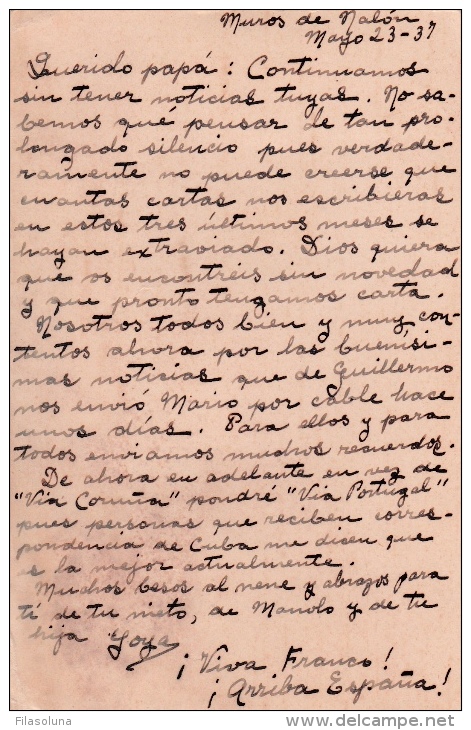 Muros de Nalón
Mayo 23-37
Querido papá: Continuamos
sin tener noticias tuyas. No sa-
bemos qué pensar de tan pro-
longado silencio pues verdade-
ramente no puede creerse que
cuantas cartas nos escribiéras
en estos tres últimos meses se
hayan extraviado. Dios quiera
que os encontréis sin novedad
y que pronto tengamos carta.
Nosotros todos bien y muy con-
tentos ahora por las buenísi-
mas noticias que de Guillermo
nos envió Mario por cable hace
unos días. Para ellos y para
todos enviamos muchos recuerdos.
De ahora en adelante en vez de
"Vía Coruña" pondré "Vía Portugal"
pues personas que reciben corres-
pondencia de Cuba me dicen que
es la mejor actualmente.
Muchos besos al nene y abrazos para
tí de tu nieto, de Manolo y de tu
hija Goya
¡Viva Franco!
¡Arriba España!
Filasoluna
www.delcampe.net